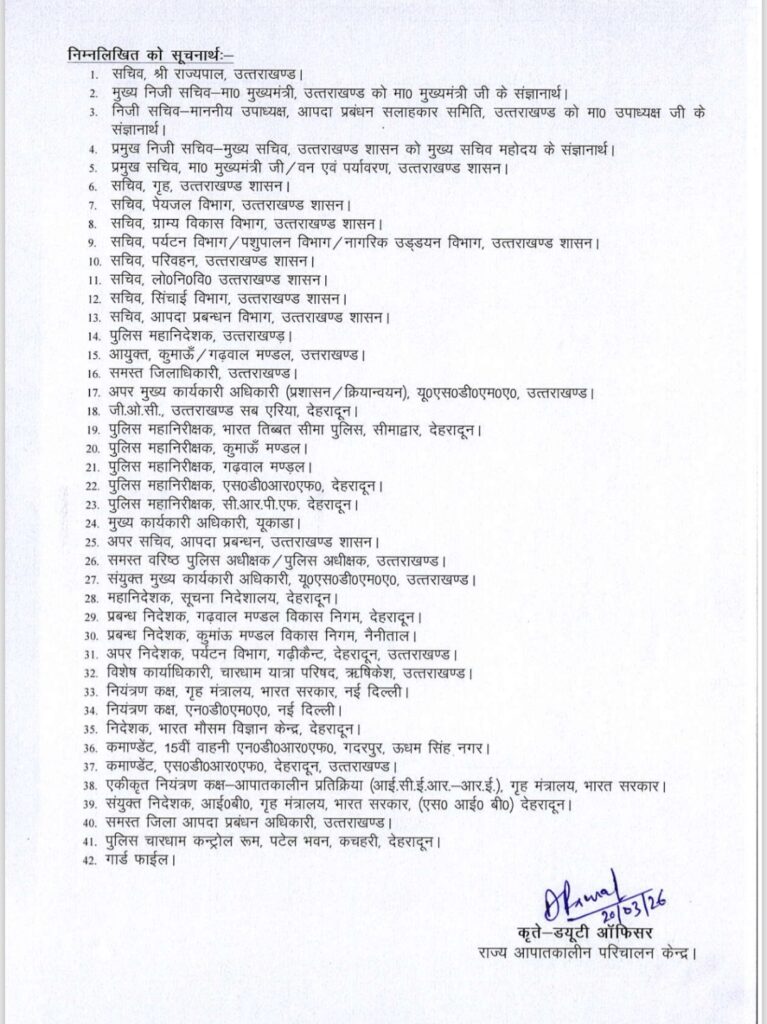 निम्नलिखित को सूचनार्थः–
1. सचिव, श्री राज्यपाल, उत्तराखण्ड।
2. मुख्य निजी सचिव–मा0 मुख्यमंत्री, उत्तराखण्ड को मा0 मुख्यमंत्री जी के संज्ञानार्थ।
3. निजी सचिव–माननीय उपाध्यक्ष, आपदा प्रबंधन सलाहकार समिति, उत्तराखण्ड को मा0 उपाध्यक्ष जी के
संज्ञानार्थ।
4. प्रमुख निजी सचिव–मुख्य सचिव, उत्तराखण्ड शासन को मुख्य सचिव महोदय के संज्ञानार्थ।
5. प्रमुख सचिव, मा0 मुख्यमंत्री जी/वन एवं पर्यावरण, उत्तराखण्ड शासन।
6. सचिव, गृह, उत्तराखण्ड शासन।
7. सचिव, पेयजल विभाग, उत्तराखण्ड शासन।
8. सचिव, ग्राम्य विकास विभाग, उत्तराखण्ड शासन।
9. सचिव, पर्यटन विभाग/पशुपालन विभाग/नागरिक उड्डयन विभाग, उत्तराखण्ड शासन।
10. सचिव, परिवहन, उत्तराखण्ड शासन।
11. सचिव, लो0नि0वि0 उत्तराखण्ड शासन।
12. सचिव, सिंचाई विभाग, उत्तराखण्ड शासन।
13. सचिव, आपदा प्रबन्धन विभाग, उत्तराखण्ड शासन।
14. पुलिस महानिदेशक, उत्तराखण्ड़।
15. आयुक्त, कुमाऊँ/गढ़वाल मण्डल, उत्तराखण्ड।
16. समस्त जिलाधिकारी, उत्तराखण्ड।
17. अपर मुख्य कार्यकारी अधिकारी (प्रशासन/क्रियान्वयन), यू0एस0डी0एम0ए0, उत्तराखण्ड।
18. जी.ओ.सी., उत्तराखण्ड सब एरिया, देहरादून।
19. पुलिस महानिरीक्षक, भारत तिब्बत सीमा पुलिस, सीमाद्वार, देहरादून।
20. पुलिस महानिरीक्षक, कुमाऊँ मण्डल।
21. पुलिस महानिरीक्षक, गढ़वाल मण्ड़ल।
22. पुलिस महानिरीक्षक, एस0डी0आर0एफ0, देहरादून।
23. पुलिस महानिरीक्षक, सी.आर.पी.एफ. देहरादून।
24. मुख्य कार्यकारी अधिकारी, यूकाडा।
25. अपर सचिव, आपदा प्रबन्धन, उत्तराखण्ड शासन।
26. समस्त वरिष्ठ पुलिस अधीक्षक/पुलिस अधीक्षक, उत्तराखण्ड।
27. संयुक्त मुख्य कार्यकारी अधिकारी, यू0एस0डी0एम0ए0, उत्तराखण्ड।
28. महानिदेशक, सूचना निदेशालय, देहरादून।
29. प्रबन्ध निदेशक, गढ़वाल मण्डल विकास निगम, देहरादून।
30. प्रबन्ध निदेशक, कुमांऊ मण्डल विकास निगम, नैनीताल।
31. अपर निदेशक, पर्यटन विभाग, गढ़ीकैन्ट, देहरादून, उत्तराखण्ड।
32. विशेष कार्याधिकारी, चारधाम यात्रा परिषद, ऋषिकेश, उत्तराखण्ड।
33. नियंत्रण कक्ष, गृह मंत्रालय, भारत सरकार, नई दिल्ली।
34. नियंत्रण कक्ष, एन0डी0एम0ए0, नई दिल्ली।
35. निदेशक, भारत मौसम विज्ञान केन्द्र, देहरादून।
36. कमाण्डेंट, 15वीं वाहनी एन0डी0आर0एफ0, गदरपुर, ऊधम सिंह नगर।
37. कमाण्डेंट, एस0डी0आर0एफ0, देहरादून, उत्तराखण्ड।
38. एकीकृत नियंत्रण कक्ष–आपातकालीन प्रतिक्रिया (आई.सी.ई.आर.–आर.ई.), गृह मंत्रालय, भारत सरकार।
39. संयुक्त निदेशक, आई0बी0, गृह मंत्रालय, भारत सरकार, (एस0 आई0 बी0) देहरादून।
40. समस्त जिला आपदा प्रबंधन अधिकारी, उत्तराखण्ड।
41. पुलिस चारधाम कन्ट्रोल रूम, पटेल भवन, कचहरी, देहरादून।
42. गार्ड फाईल।
20/03/26
कृते–डयूटी ऑफिसर
राज्य आपातकालीन परिचालन केन्द्र।